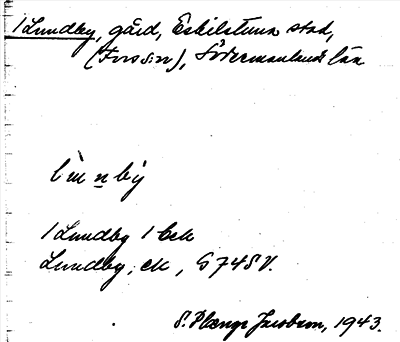 1 Lundby, gård, Eskilstuna stad,
(Fors sn), Södermanlands län
lu̇nby̆
1 Lundby 1 bck
Lundby, ek, G 74 SV.
S. Jacobson, 1943.